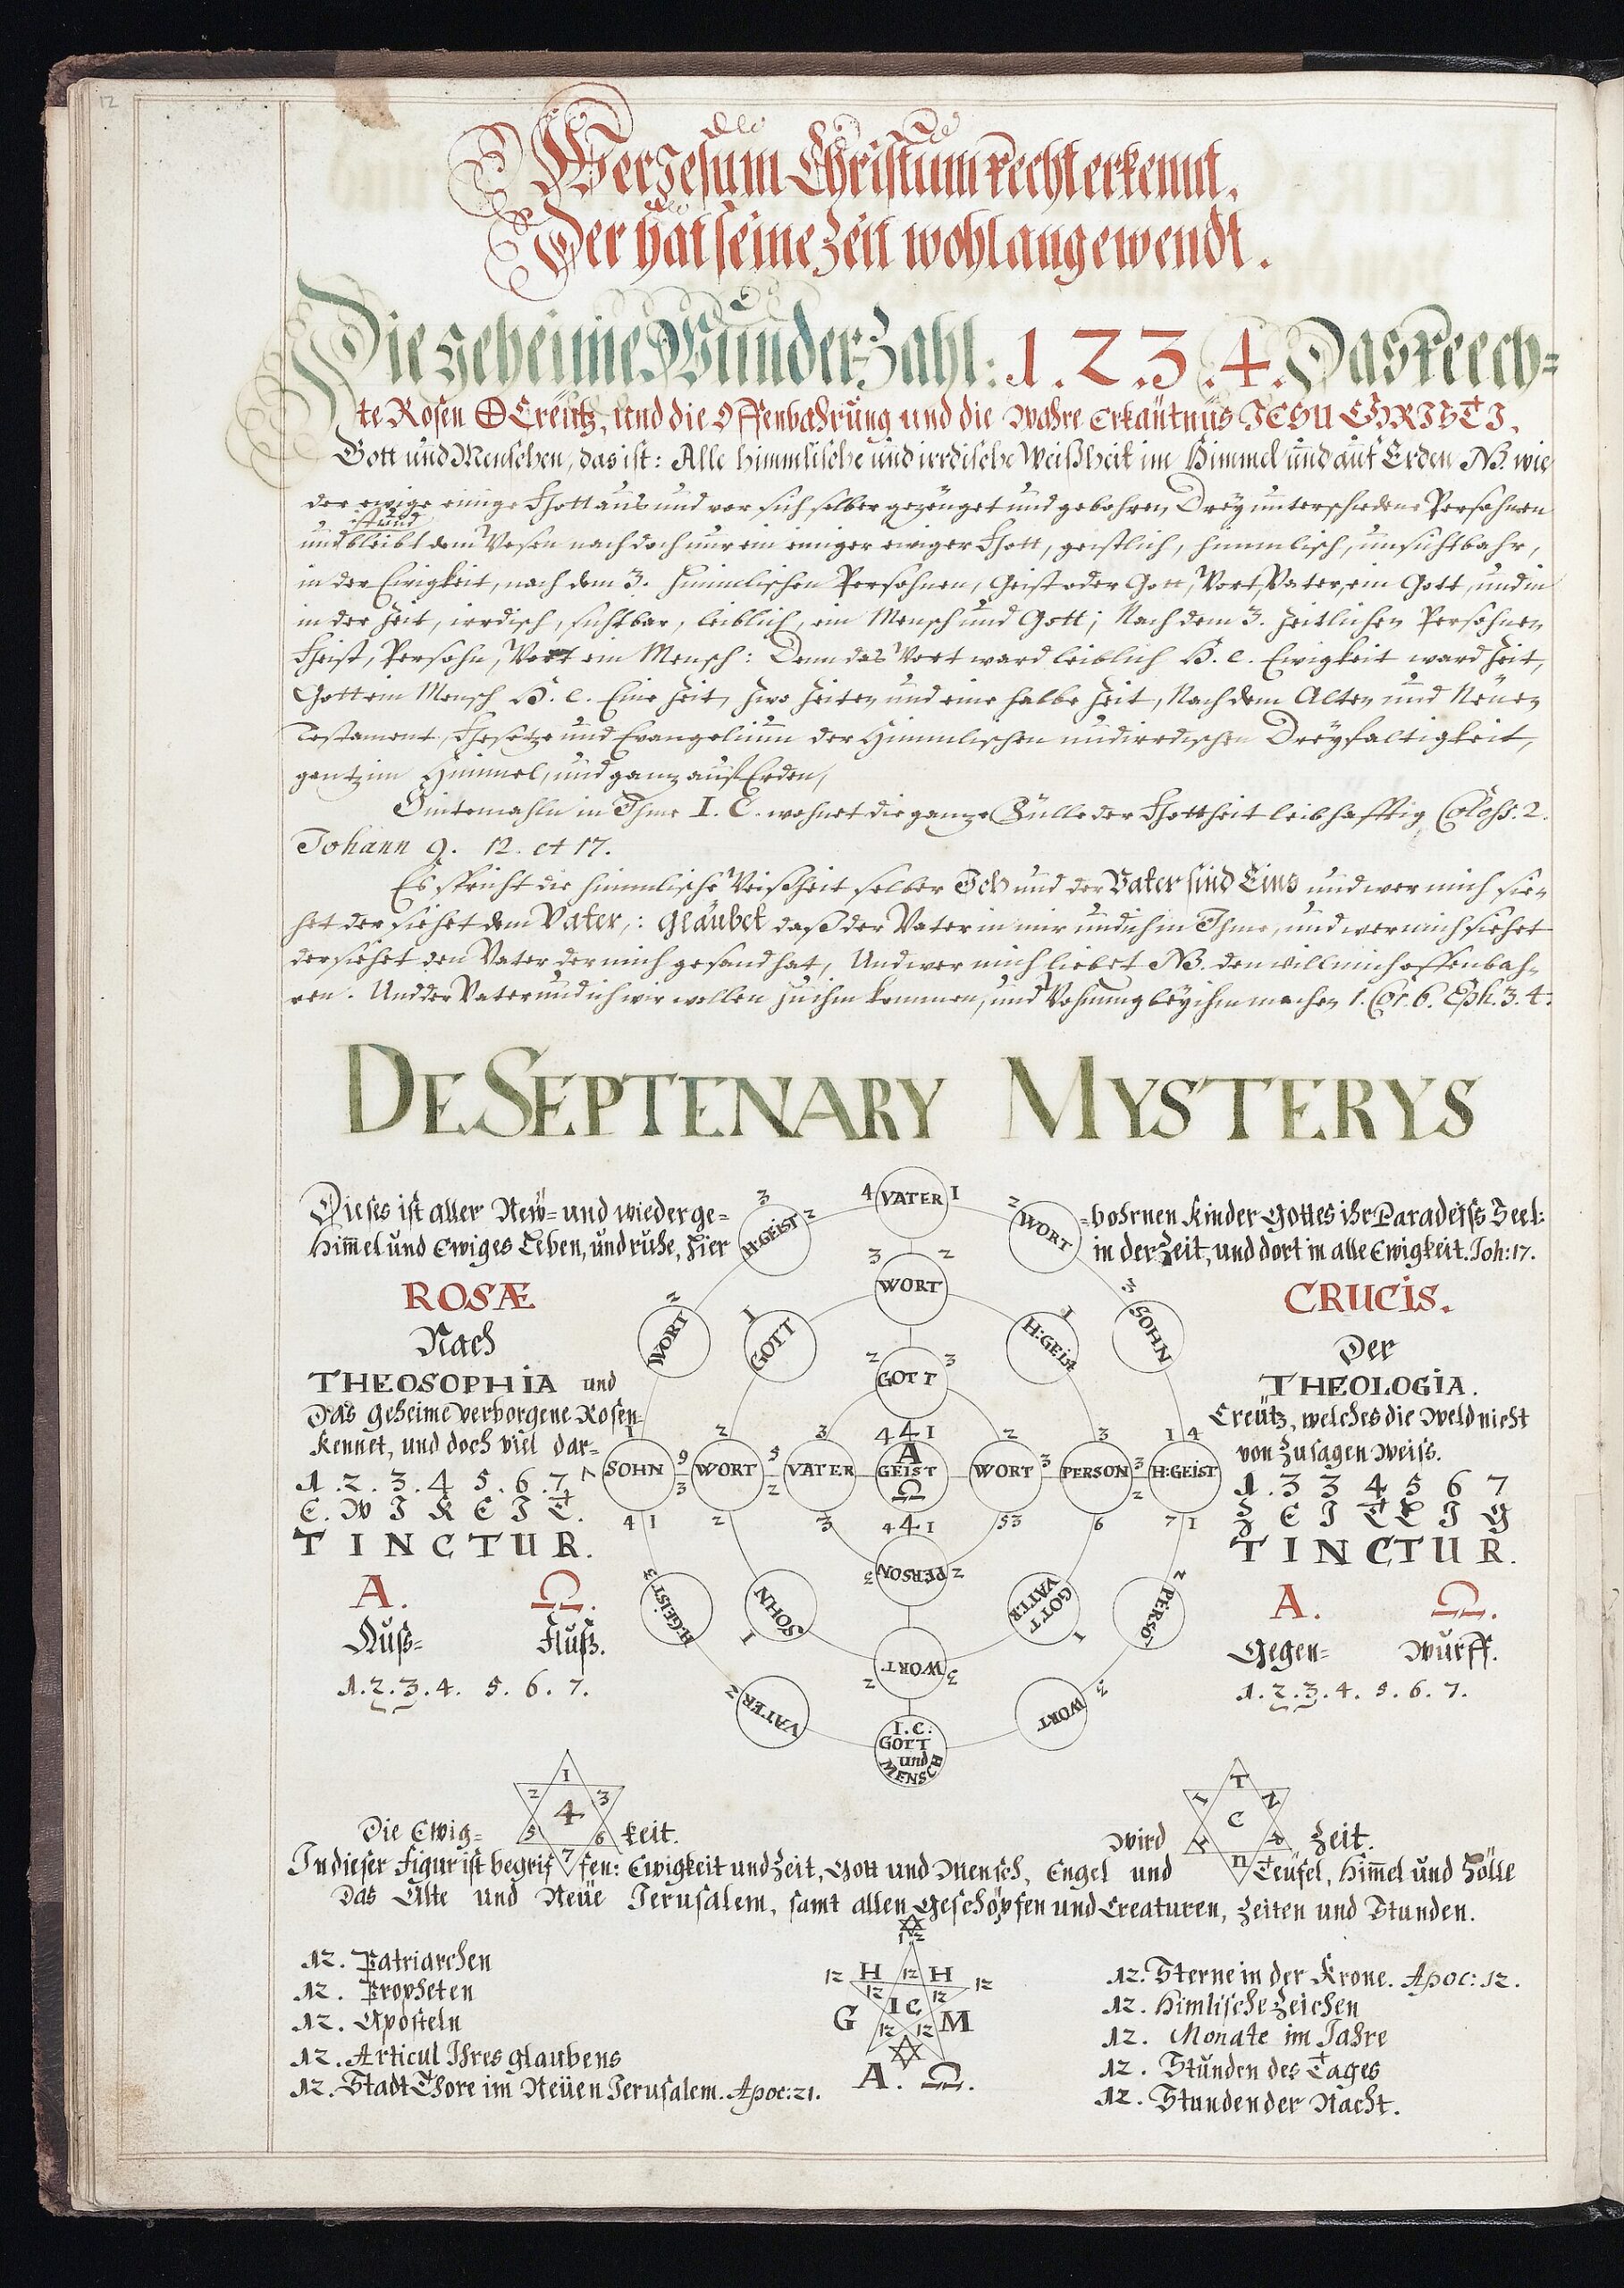 12
Wer Jesum Christum recht erkennt,
Der hat seine Zeit wohl angewendt.
Die geheime Wunder-Zahl: 1. 2. 3. 4. Das reech=
te Rosen Creütz, und die Offenbahrung und die wahre Erkäntnüs JESU CHRISTI,
Gott und Menschen, das ist: Alle himmlische und irrdische Weißheit im Himmel und auf Erden NB. wie
der ewige einige Gott aus und vor sich selber gezeuget und gebohren Drey unterschiedene Persohnen
ist und
und bleibt dem Wesen nach doch nur ein einiger ewiger Gott, geistlich, himmlisch, unsichtbahr,
in der Ewigkeit, nach dem 3. himmlischen Persohnen, Geist oder Gott, Wort, Vater, ein Gott, und in
in der Zeit, irrdisch, sichtbar, leiblich, ein Mensch und Gott; Nach dem 3. Zeitlichen Persohnen
Geist, Persohn, Wort ein Mensch: Denn das Wort ward leiblich H. e. Ewigkeit ward Zeit,
Gott ein Mensch H. e. Eine Zeit, zwo Zeiten und eine halbe Zeit, Nach dem Alten und Neüen
Testament, Gesetze und Evangelium der Himmlischen und irrdischen Dreyfaltigkeit,
gantz im Himmel, und gantz auf Erden,
Sintemahln in Ihme I. C. wohnet die gantze Fülle der Gottheit leibhafftig Coloss. 2.
Johann 9. 12. et 17.
Es spricht die himmlische Weißheit selber Ich und der Vater sind Eins und wer mich sie=
het der siehet dem Vater,: Gläubet daß der Vater in mir und ich in Ihme, und wer mich siehet
der siehet den Vater der mich gesand hat, Und wer mich liebet NB. den will mich offenbah=
ren. Und der Vater und ich wir wollen zu ihm kommen, und Wohnung bey ihm machen 1. Cor. 6. Eph. 3. 4.
DE SEPTENARY MYSTERYS
Dieses ist aller New= und wiederge=
Himmel und Ewiges Leben, und ruhe, hier
=bohrnen Kinder Gottes ihr Paradeiss Seel:
in der Zeit, und dort in alle Ewigkeit. Joh: 17.
ROSÆ
Nach
THEOSOPHIA und
Das geheime verborgene Rosen=
kennet, und doch viel dar=
1. 2. 3. 4 5. 6. 7.
E. W I K E I T.
TINCTUR.
A. Ω.
Auß= Fluß.
1. 2. 3. 4. 5. 6. 7.
CRUCIS.
Der
THEOLOGIA.
Creütz, welches die Weld nicht
von zu sagen weiss.
1. 3 3 4 5 6 7
Z E I T L I G
TINCTUR.
A. Ω.
Gegen= Wurff.
1. 2. 3. 4. 5. 6. 7.
4 VATER 1
3 H:GEIST 2
2 WORT
3 2
WORT
2 WORT
1 GOTT
1 H:GEIST
3 SOHN
2 3
GOTT
1 2 3 4 4 1 2 3 1 4
SOHN 9 3 WORT 5 2 VATER A GEIST Ω WORT 3 PERSON 3 2 H:GEIST
4 1 2 3 4 4 1 5 3 6 7 1
3 PERSON 2
3 H:GEIST
SOHN 1
GOTT VATER 1
PERSO 2
2 WORT 3
2 VATER
WORT 3
I.C:
GOTT
und
MENSCH
1
2 3
4
5 6
7
T
I Z
C
n
Die Ewig= keit. wird Zeit.
In dieser Figur ist begrif fen: Ewigkeit und Zeit, Gott und Mensch, Engel und Teüfel, Himmel und Hölle
Das Alte und Neüe Jerusalem, samt allen Geschöpfen und Creaturen, Zeiten und Stunden.
12. Patriarchen
12. Propheten
12. Aposteln
12. Articul Ihres glaubens
12. Stadt Thore im Neüen Jerusalem. Apoc: 21.
12
12 H 12 H 12
12 12
G I C M
12 12
A. Ω.
12. Sterne in der Krone. Apoc: 12.
12. Himlische Zeichen
12. Monate im Jahre
12. Stunden des Tages
12. Stunden der Nacht.